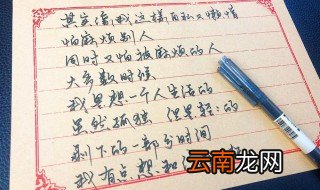 其实像我这样自私又懒惰
怕麻烦别人
同时又怕被麻烦的人
大多数时候
我是想一个人生活的
虽然孤独 但是轻的
剩下的一部分时间
我有点想和
云南龙网